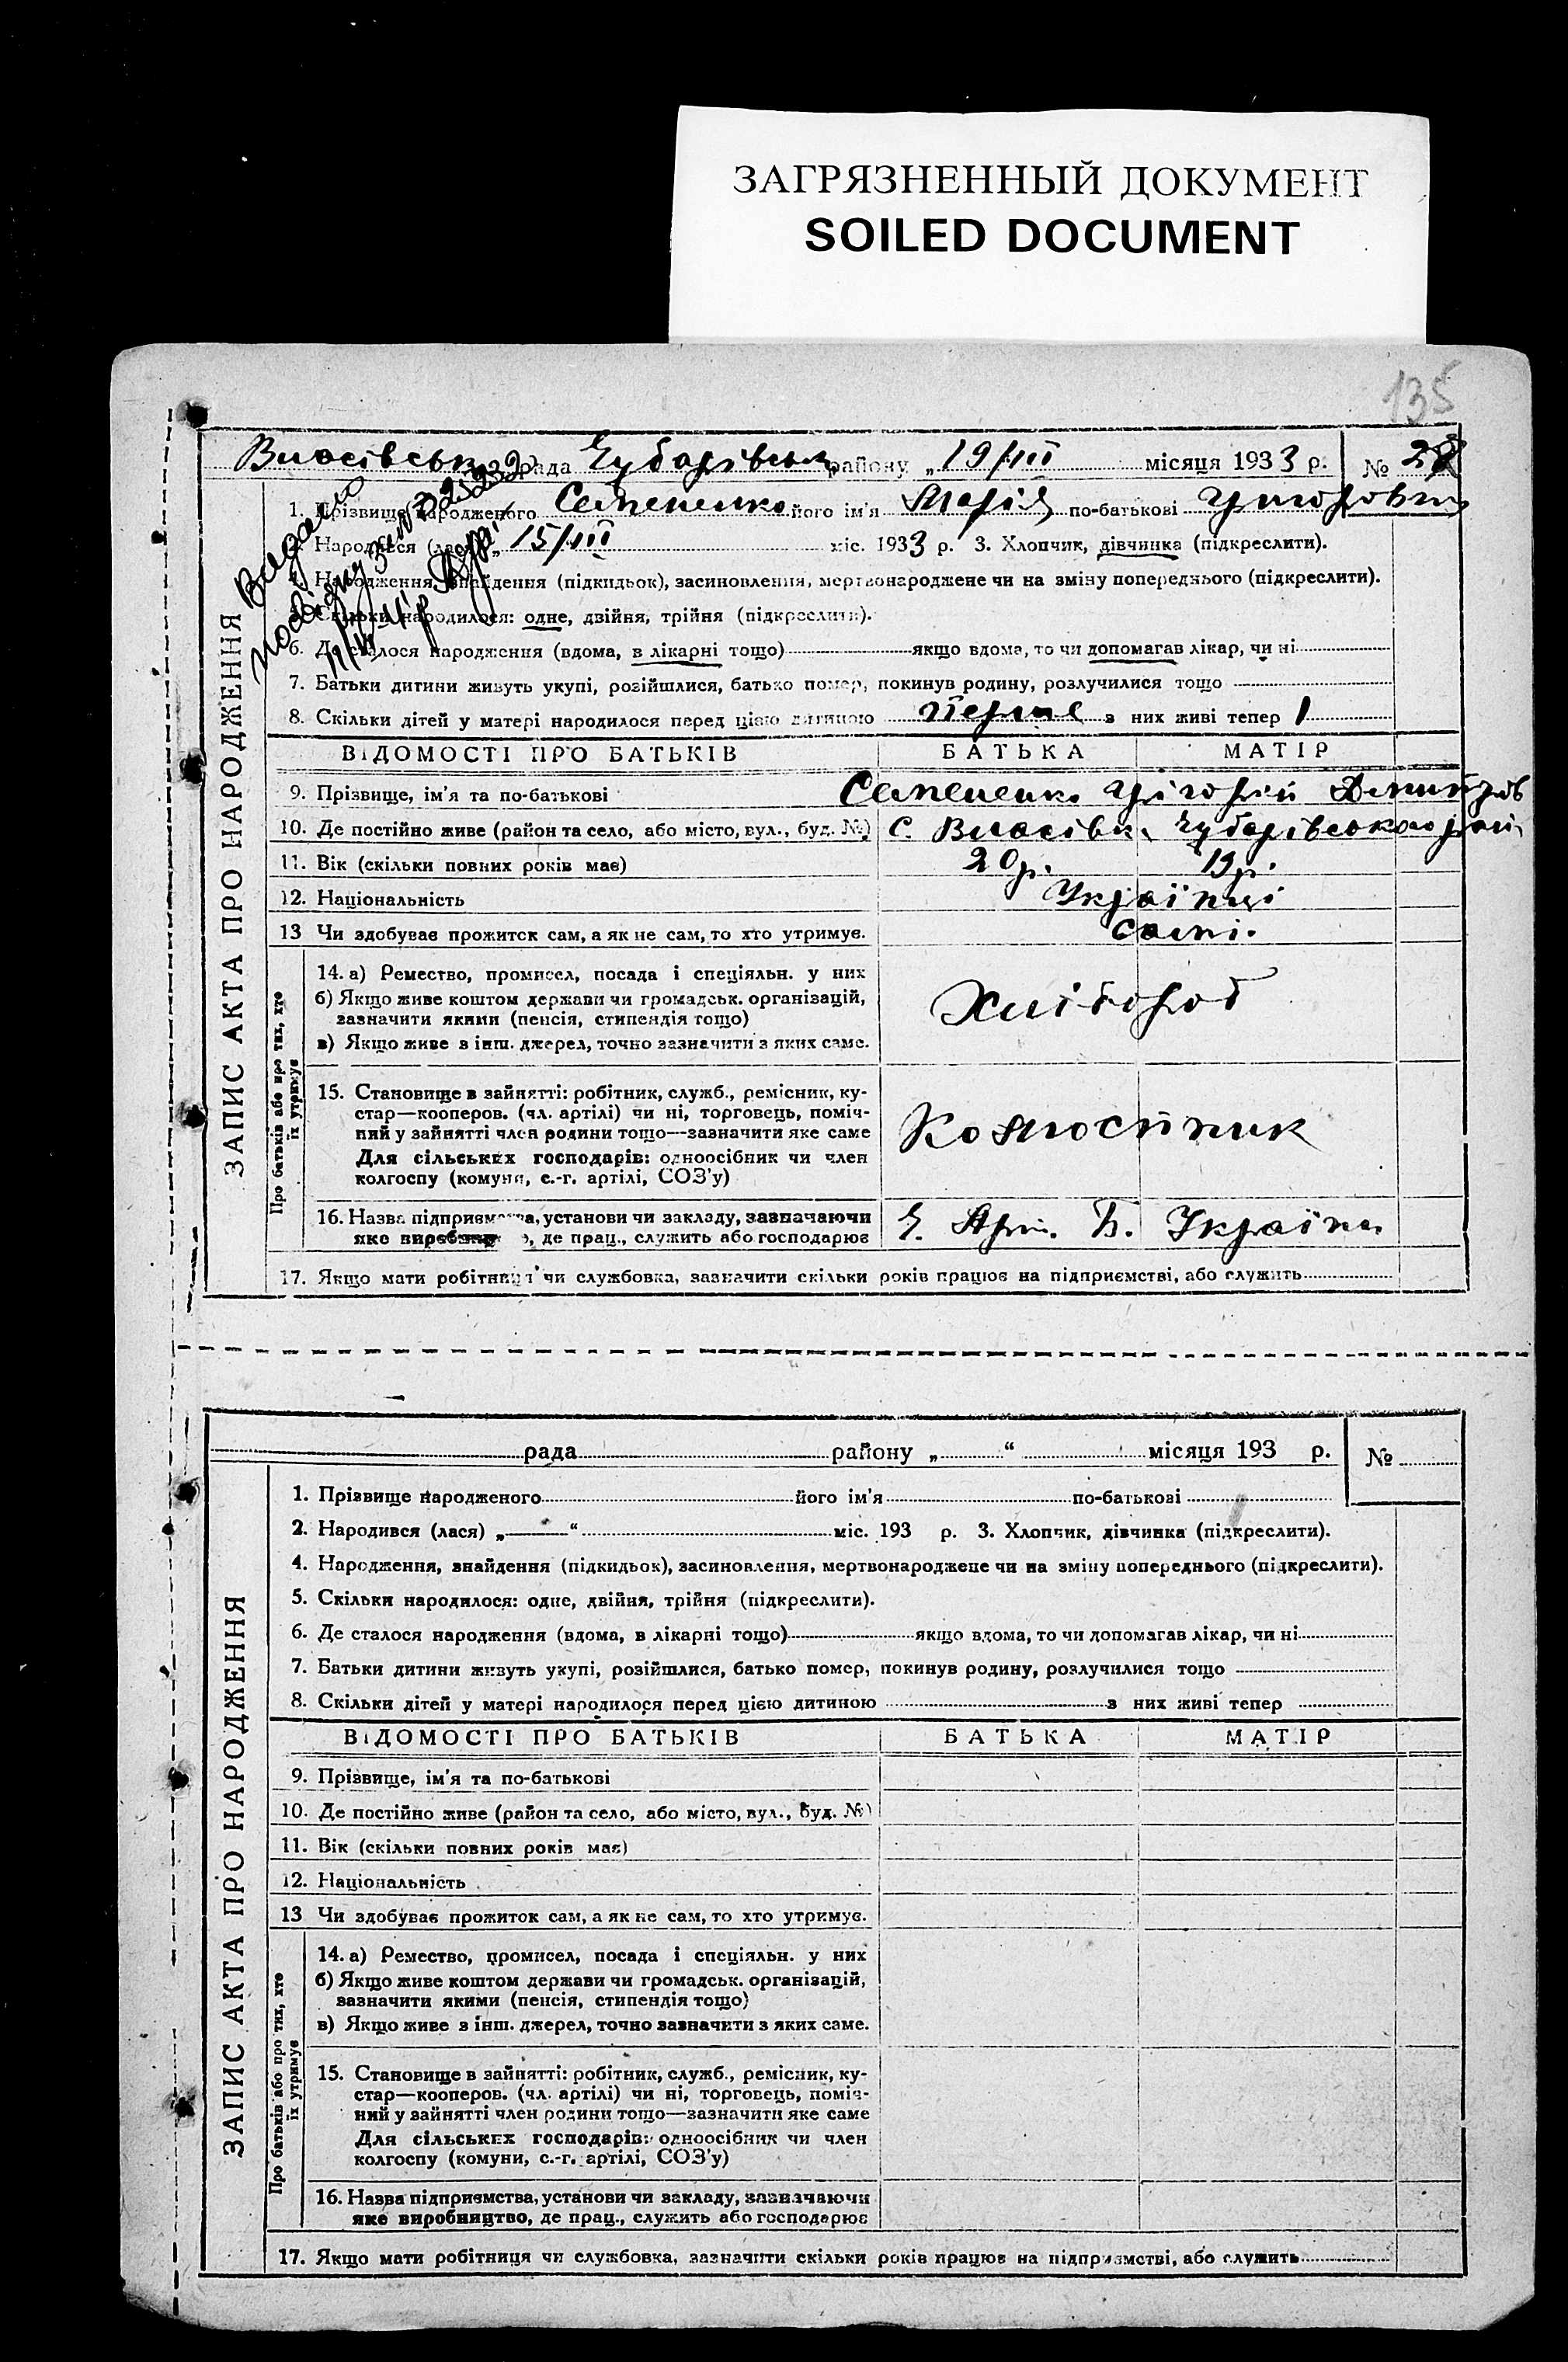 ЗАГРЯЗНЕННЫЙ ДОКУМЕНТ
SOILED DOCUMENT
135
Власівська рада Чубарівськ району „ 19/III місяця 1933 р. № 28
ЗАПИС АКТА ПРО НАРОДЖЕННЯ
Видано
1. Прізвище народженого Семененко його ім'я Марія по-батькові Григоровна
2. Народився (лася) „ 15/III міс. 1933 р. 3. Хлопчик, дівчинка (підкреслити).
4. Народження, знайдення (підкидьок), засиновлення, мертвонароджене чи на зміну попереднього (підкреслити).
5. Скільки народилося: одне, двійня, трійня (підкреслити).
6. Де сталося народження (вдома, в лікарні тощо) якщо вдома, то чи допомагав лікар, чи ні
7. Батьки дитини живуть укупі, розійшлися, батько помер, покинув родину, розлучилися тощо
8. Скільки дітей у матері народилося перед цією дитиною перше з них живі тепер 1
ВІДОМОСТІ ПРО БАТЬКІВ БАТЬКА МАТІР
9. Прізвище, ім'я та по-батькові Семененко Григорій
10. Де постійно живе (район та село, або місто, вул., буд. №) с. Власівка Чубарівського рай
11. Вік (скільки повних років має) 20 р. 19 р.
12. Національність Українці
13 Чи здобуває прожиток сам, а як не сам, то хто утримує. самі.
Про батьків або про тих, хто їх утримує
14. а) Ремество, промисел, посада і спеціяльн. у них
б) Якщо живе коштом держави чи громадськ. організацій,
зазначити якими (пенсія, стипендія тощо)
Хлібороб
в) Якщо живе з інш. джерел, точно зазначити з яких саме.
15. Становище в зайнятті: робітник, служб., ремісник, ку-
стар—кооперов. (чл. артілі) чи ні, торговець, поміч-
ний у зайнятті член родини тощо—зазначити яке саме
Колгоспник
Для сільських господарів: одноосібник чи член
колгоспу (комуни, с.-г. артілі, СОЗ'у)
16. Назва підприємства, установи чи закладу, зазначаючи
яке виробництво, де прац., служить або господарює
Україна
17. Якщо мати робітниця чи службовка, зазначити скільки років працює на підприємстві, або служить
рада району „ “ місяця 193 р. №
ЗАПИС АКТА ПРО НАРОДЖЕННЯ
1. Прізвище народженого його ім'я по-батькові
2. Народився (лася) „ “ міс. 193 р. 3. Хлопчик, дівчинка (підкреслити).
4. Народження, знайдення (підкидьок), засиновлення, мертвонароджене чи на зміну попереднього (підкреслити).
5. Скільки народилося: одне, двійня, трійня (підкреслити).
6. Де сталося народження (вдома, в лікарні тощо) якщо вдома, то чи допомагав лікар, чи ні
7. Батьки дитини живуть укупі, розійшлися, батько помер, покинув родину, розлучилися тощо
8. Скільки дітей у матері народилося перед цією дитиною з них живі тепер
ВІДОМОСТІ ПРО БАТЬКІВ БАТЬКА МАТІР
9. Прізвище, ім'я та по-батькові
10. Де постійно живе (район та село, або місто, вул., буд. №)
11. Вік (скільки повних років має)
12. Національність
13 Чи здобуває прожиток сам, а як не сам, то хто утримує.
Про батьків або про тих, хто їх утримує
14. а) Ремество, промисел, посада і спеціяльн. у них
б) Якщо живе коштом держави чи громадськ. організацій,
зазначити якими (пенсія, стипендія тощо)
в) Якщо живе з інш. джерел, точно зазначити з яких саме.
15. Становище в зайнятті: робітник, служб., ремісник, ку-
стар—кооперов. (чл. артілі) чи ні, торговець, поміч-
ний у зайнятті член родини тощо—зазначити яке саме
Для сільських господарів: одноосібник чи член
колгоспу (комуни, с.-г. артілі, СОЗ'у)
16. Назва підприємства, установи чи закладу, зазначаючи
яке виробництво, де прац., служить або господарює
17. Якщо мати робітниця чи службовка, зазначити скільки років працює на підприємстві, або служить